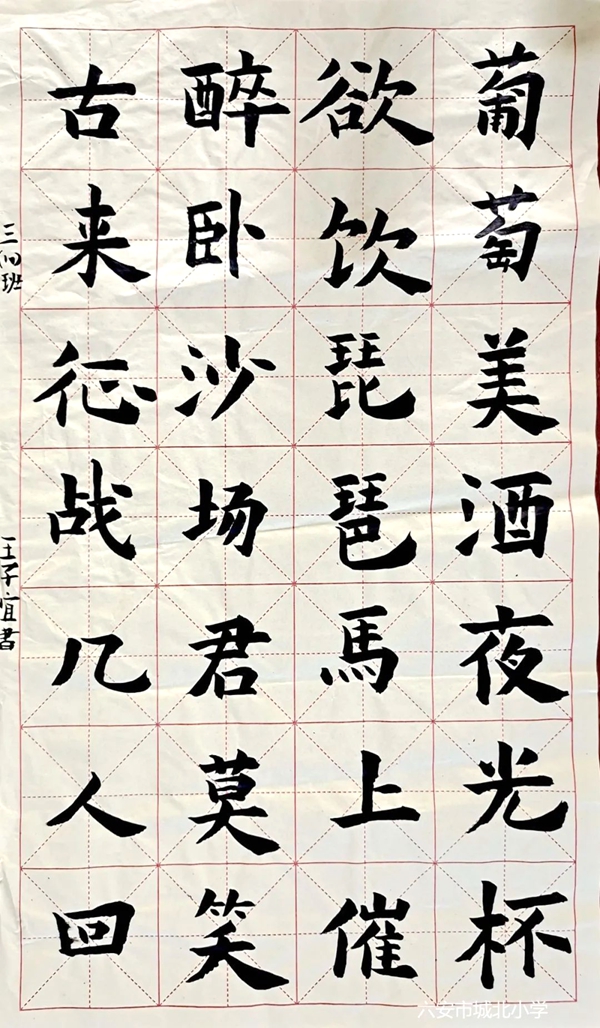 葡萄美酒夜光杯
欲饮琵琶馬上催
醉卧沙场君莫笑
古来征战几人回
三(4)班 王子宜書
六安市城北小学